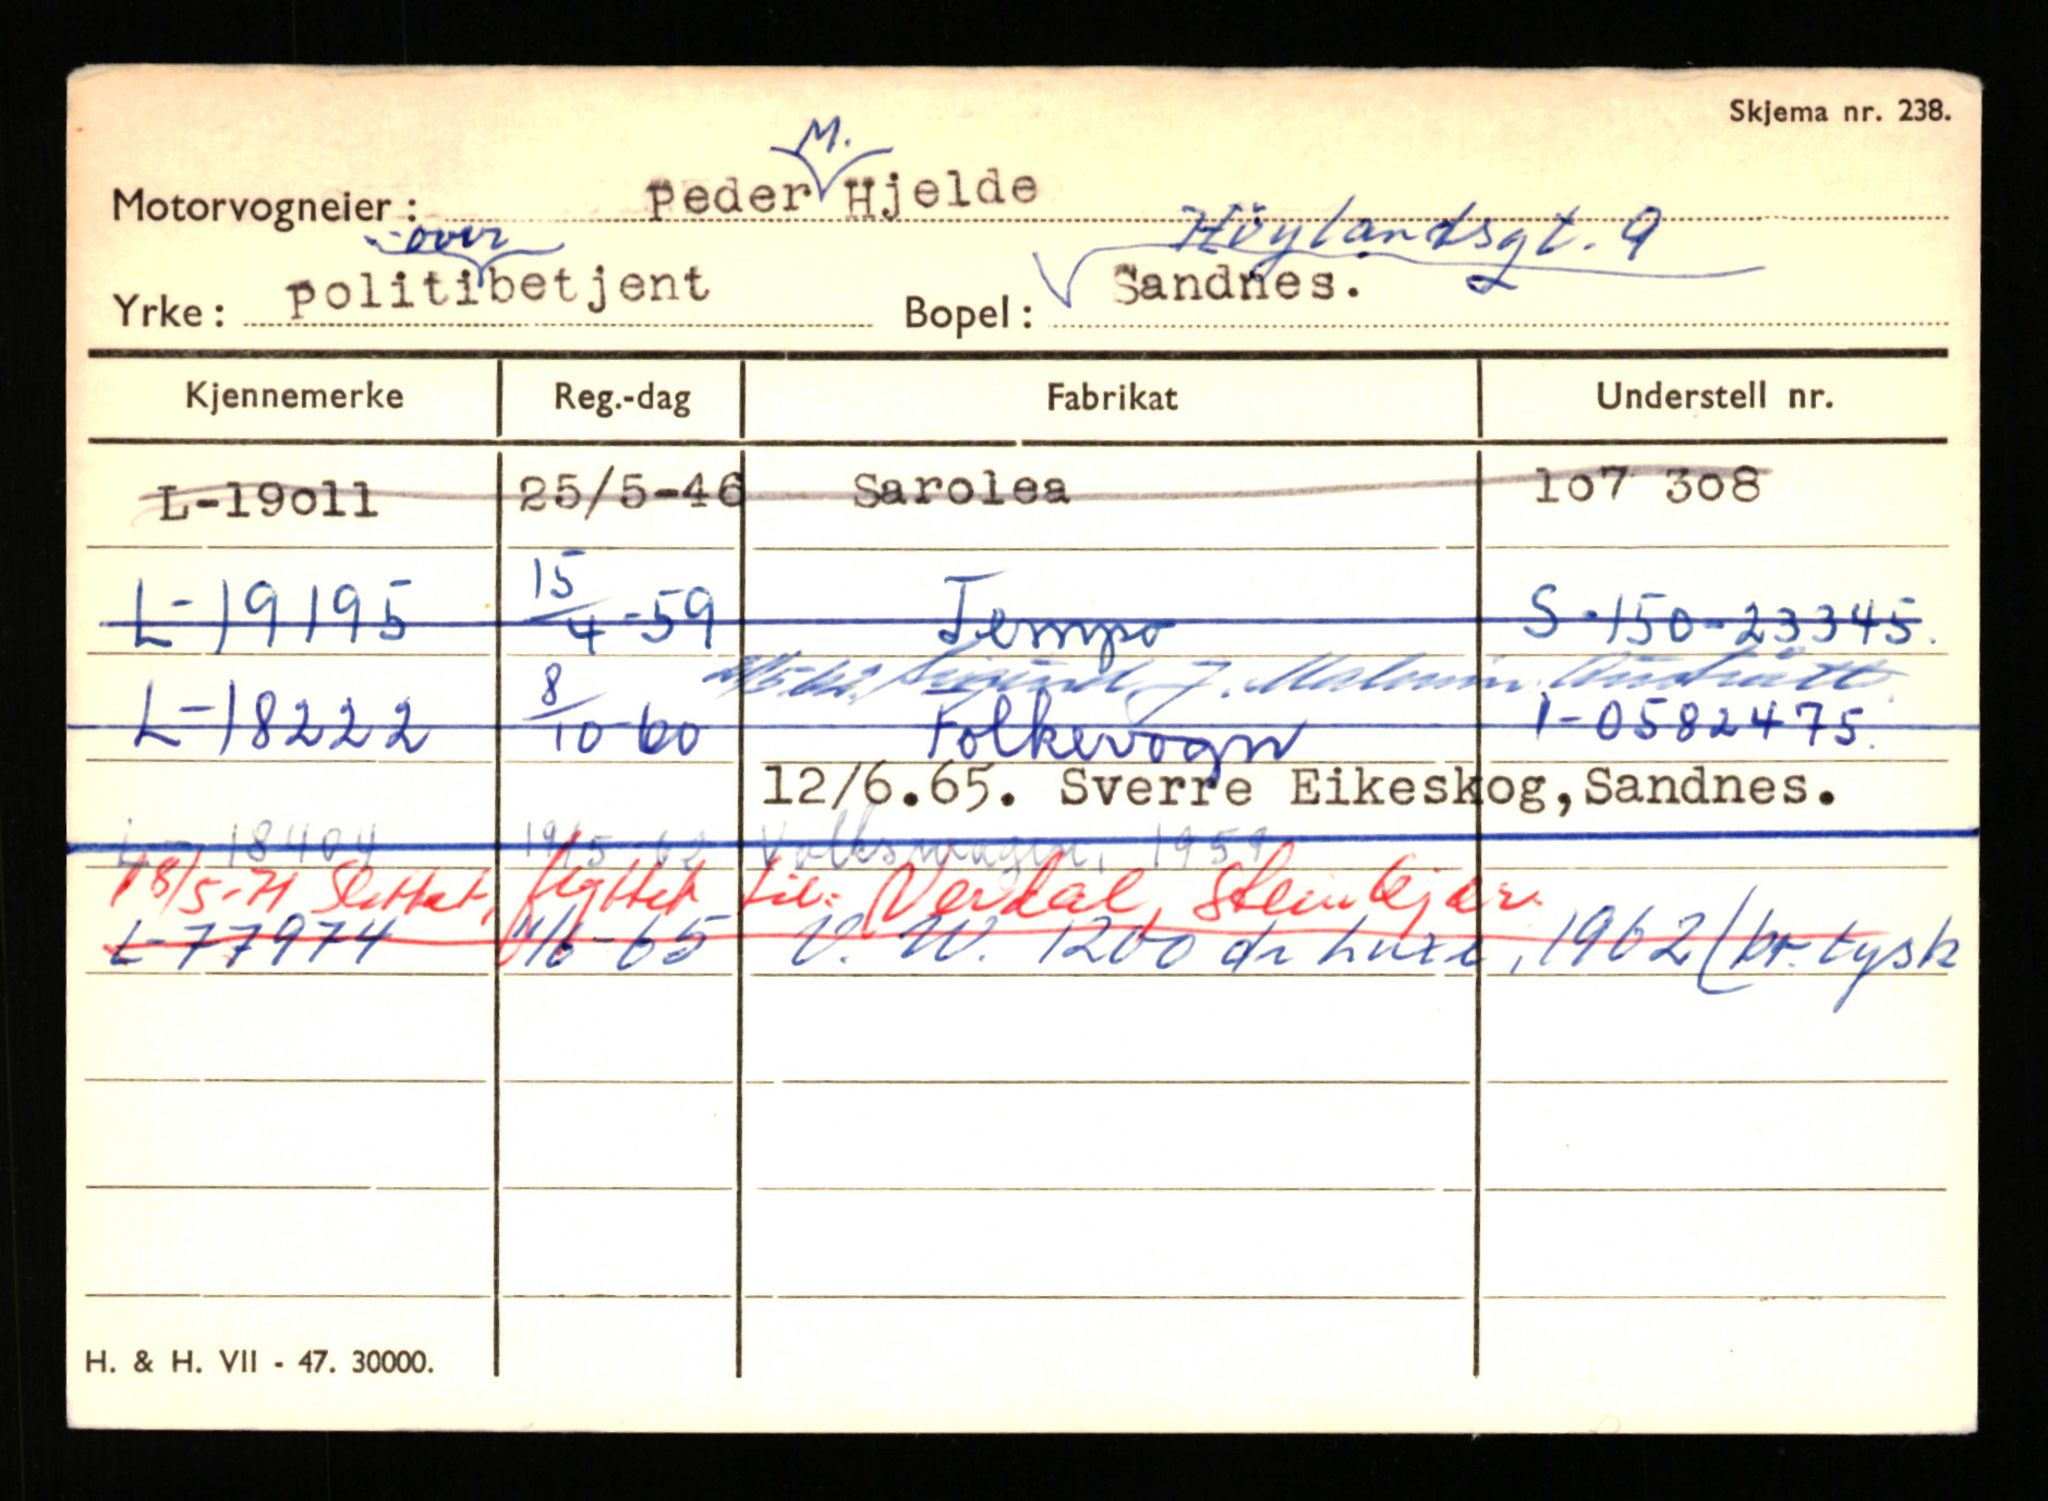 Skjema nr. 238.
M.
Motorvogneier: Peder Hjelde
over Höylandsgt. 9
Yrke: politibetjent Bopel: Sandnes.
Kjennemerke Reg.-dag Fabrikat Understell nr.
L-19011 25/5-46 Sarolea 107 308
L-19195 15/4-59 Tempo S-150-23345.
J. Malmin
L-18222 8/10 60 Folkevogn 1-0582475.
12/6.65. Sverre Eikeskog, Sandnes.
L-18404 19/5-62 Volkswagen, 1959
18/5-71 Slettet, flyttet til: Verdal, Steinkjer.
L-77974 11/6-65 V.W. 1200 de luxe, 1962 (br. tysk
H. & H. VII - 47. 30000.